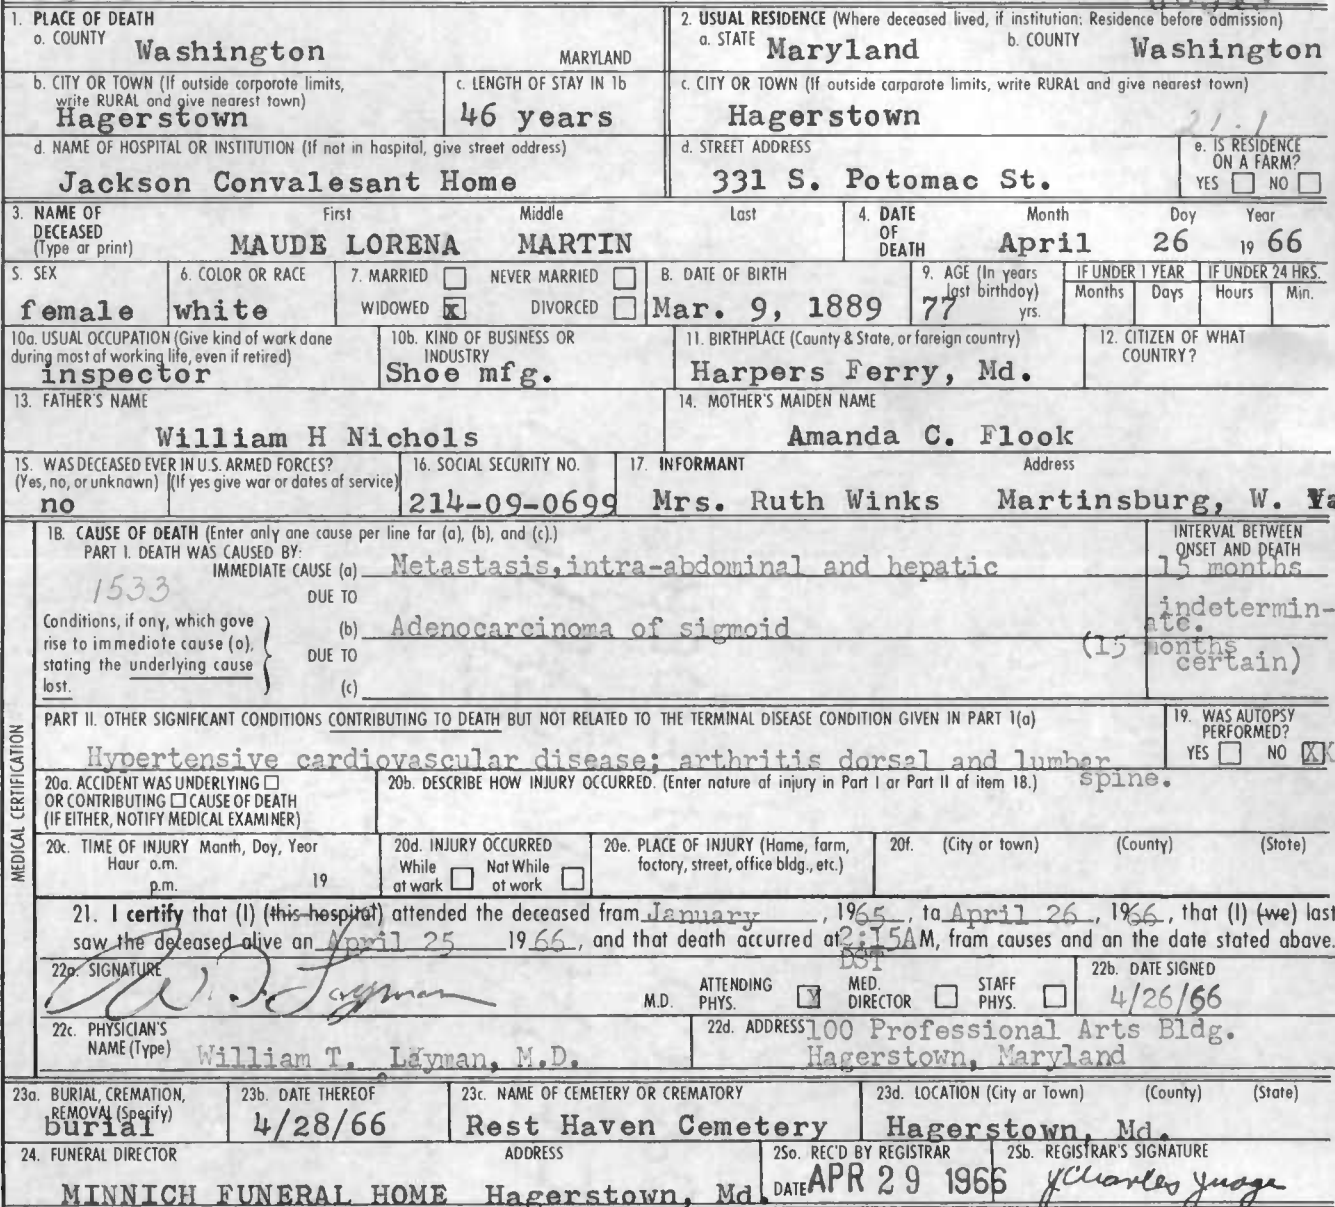 1. PLACE OF DEATH
a. COUNTY
Washington
MARYLAND
2. USUAL RESIDENCE (Where deceased lived, if institution: Residence before admission)
a. STATE Maryland b. COUNTY Washington
b. CITY OR TOWN (If outside corporate limits, write RURAL and give nearest town)
Hagerstown
c. LENGTH OF STAY IN 1b
46 years
c. CITY OR TOWN (If outside corporate limits, write RURAL and give nearest town)
Hagerstown
21.1
d. NAME OF HOSPITAL OR INSTITUTION (If not in hospital, give street address)
Jackson Convalesant Home
d. STREET ADDRESS
331 S. Potomac St.
e. IS RESIDENCE ON A FARM?
YES NO
3. NAME OF DECEASED (Type or print)
First Middle Last
MAUDE LORENA MARTIN
4. DATE OF DEATH
Month Day Year
April 26 19 66
5. SEX
female
6. COLOR OR RACE
white
7. MARRIED NEVER MARRIED
WIDOWED X DIVORCED
8. DATE OF BIRTH
Mar. 9, 1889
9. AGE (In years last birthday)
77 yrs.
IF UNDER 1 YEAR
Months Days
IF UNDER 24 HRS.
Hours Min.
10a. USUAL OCCUPATION (Give kind of work done during most of working life, even if retired)
inspector
10b. KIND OF BUSINESS OR INDUSTRY
Shoe mfg.
11. BIRTHPLACE (County & State, or foreign country)
Harpers Ferry, Md.
12. CITIZEN OF WHAT COUNTRY?
13. FATHER'S NAME
William H Nichols
14. MOTHER'S MAIDEN NAME
Amanda C. Flook
15. WAS DECEASED EVER IN U.S. ARMED FORCES?
(Yes, no, or unknown) (If yes give war or dates of service)
no
16. SOCIAL SECURITY NO.
214-09-0699
17. INFORMANT Address
Mrs. Ruth Winks Martinsburg, W. Va
MEDICAL CERTIFICATION
18. CAUSE OF DEATH (Enter only one cause per line for (a), (b), and (c).)
PART I. DEATH WAS CAUSED BY:
IMMEDIATE CAUSE (a) Metastasis,intra-abdominal and hepatic
INTERVAL BETWEEN ONSET AND DEATH
15 months
1533
DUE TO
Conditions, if any, which gave rise to immediate cause (a), stating the underlying cause last.
(b) Adenocarcinoma of sigmoid
indetermin-
ate.
(15 months
certain)
DUE TO
(c)
PART II. OTHER SIGNIFICANT CONDITIONS CONTRIBUTING TO DEATH BUT NOT RELATED TO THE TERMINAL DISEASE CONDITION GIVEN IN PART 1(a)
Hypertensive cardiovascular disease; arthritis dorsal and lumbar
spine.
19. WAS AUTOPSY PERFORMED?
YES NO XX
20a. ACCIDENT WAS UNDERLYING
OR CONTRIBUTING CAUSE OF DEATH
(IF EITHER, NOTIFY MEDICAL EXAMINER)
20b. DESCRIBE HOW INJURY OCCURRED. (Enter nature of injury in Part I or Part II of item 18.)
20c. TIME OF INJURY Month, Day, Year
Hour a.m.
p.m. 19
20d. INJURY OCCURRED
While at work Not While at work
20e. PLACE OF INJURY (Home, farm, factory, street, office bldg., etc.)
20f. (City or town) (County) (State)
21. I certify that (I) (this hospital) attended the deceased from January, 1965, to April 26, 1966, that (I) (we) last
saw the deceased alive on April 25 1966, and that death occurred at 2:15AM, from causes and on the date stated above.
DST
22a. SIGNATURE
W. T. Layman
M.D.
ATTENDING PHYS. X MED. DIRECTOR STAFF PHYS.
22b. DATE SIGNED
4/26/66
22c. PHYSICIAN'S NAME (Type)
William T. Layman, M.D.
22d. ADDRESS 100 Professional Arts Bldg.
Hagerstown, Maryland
23a. BURIAL, CREMATION, REMOVAL (Specify)
burial
23b. DATE THEREOF
4/28/66
23c. NAME OF CEMETERY OR CREMATORY
Rest Haven Cemetery
23d. LOCATION (City or Town) (County) (State)
Hagerstown, Md.
24. FUNERAL DIRECTOR ADDRESS
MINNICH FUNERAL HOME Hagerstown, Md.
25a. REC'D BY REGISTRAR
DATE APR 29 1966
25b. REGISTRAR'S SIGNATURE
Charles